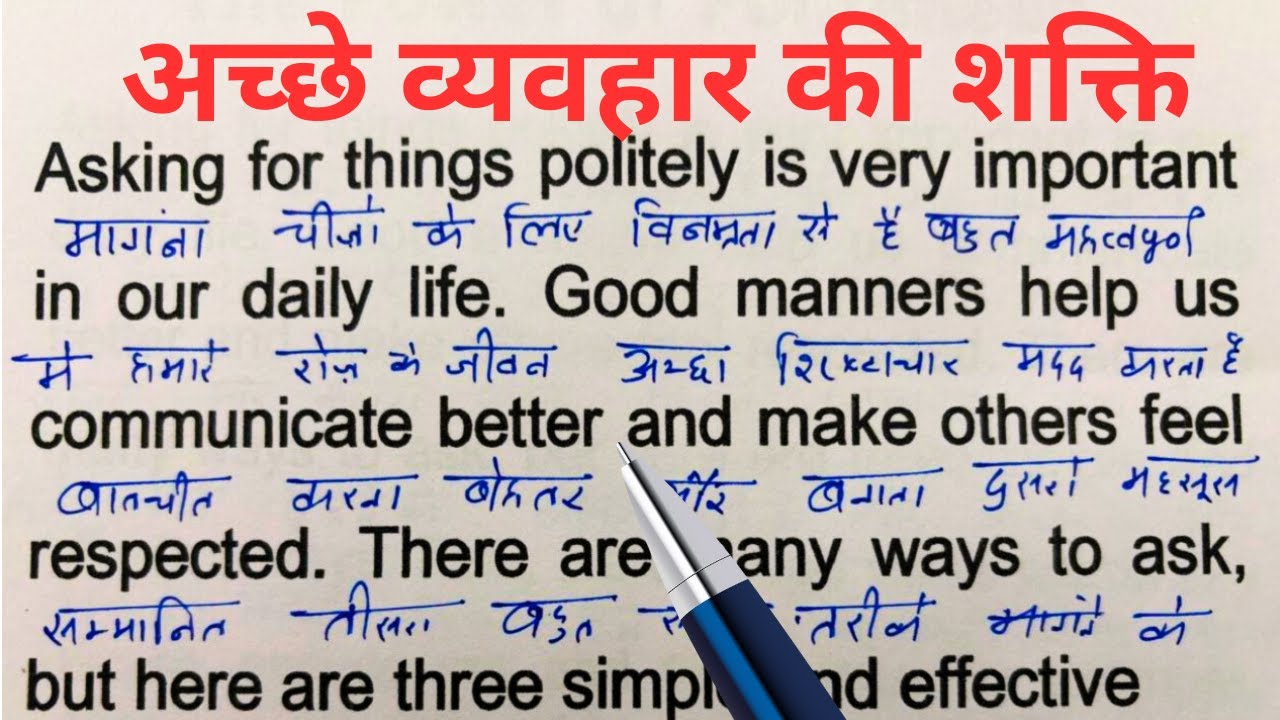 अच्छे व्यवहार की शक्ति
Asking for things politely is very important
मागंना चीज़ो के लिए विनम्रता से है बहुत महत्वपूर्ण
in our daily life. Good manners help us
मे हमारे रोज़ के जीवन अच्छा शिष्टाचार मदद करता है
communicate better and make others feel
बातचीत करना बेहतर और बनाता दुसरों महसूस
respected. There are many ways to ask,
सम्मानित तीसरा बहुत तरीके मागंने के
but here are three simple and effective